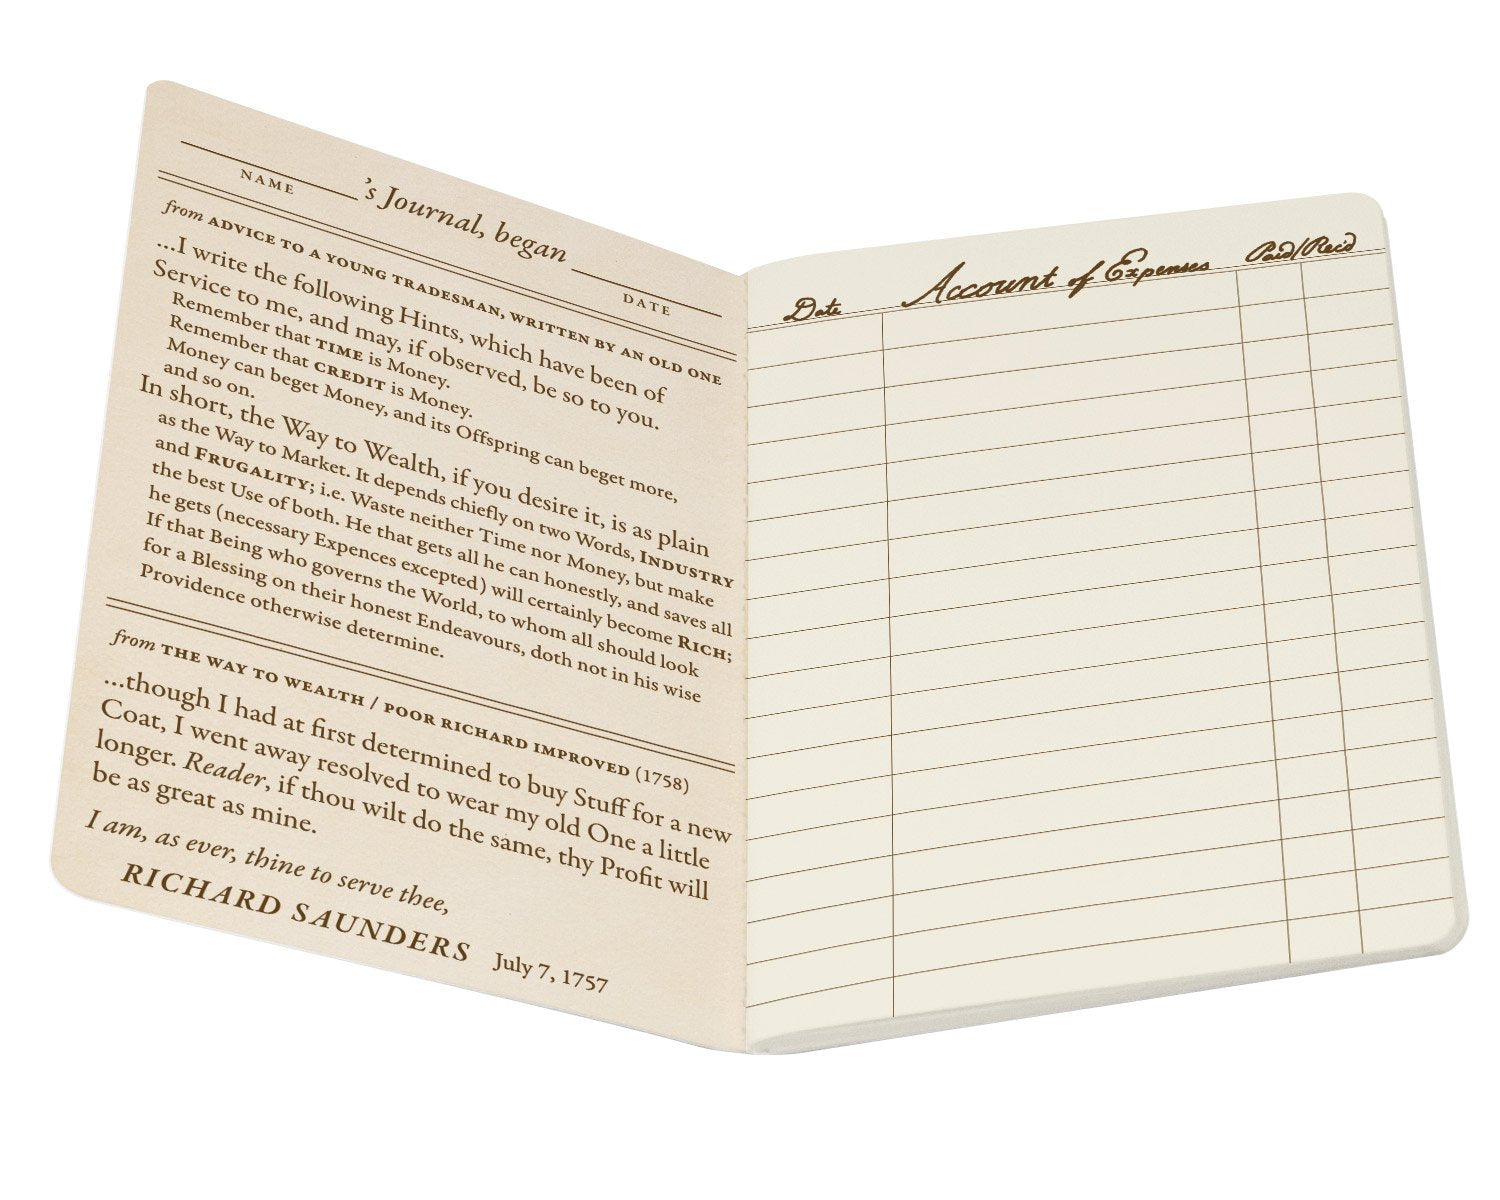 ’s Journal, began
NAME
DATE
from ADVICE TO A YOUNG TRADESMAN, WRITTEN BY AN OLD ONE
...I write the following Hints, which have been of
Service to me, and may, if observed, be so to you.
Remember that TIME is Money.
Remember that CREDIT is Money.
Money can beget Money, and its Offspring can beget more,
and so on.
In short, the Way to Wealth, if you desire it, is as plain
as the Way to Market. It depends chiefly on two Words, INDUSTRY
and FRUGALITY; i.e. Waste neither Time nor Money, but make
the best Use of both. He that gets all he can honestly, and saves all
he gets (necessary Expences excepted) will certainly become RICH;
If that Being who governs the World, to whom all should look
for a Blessing on their honest Endeavours, doth not in his wise
Providence otherwise determine.
from THE WAY TO WEALTH / POOR RICHARD IMPROVED (1758)
...though I had at first determined to buy Stuff for a new
Coat, I went away resolved to wear my old One a little
longer. Reader, if thou wilt do the same, thy Profit will
be as great as mine.
I am, as ever, thine to serve thee,
RICHARD SAUNDERS July 7, 1757
Date Account of Expenses Paid/Rec'd